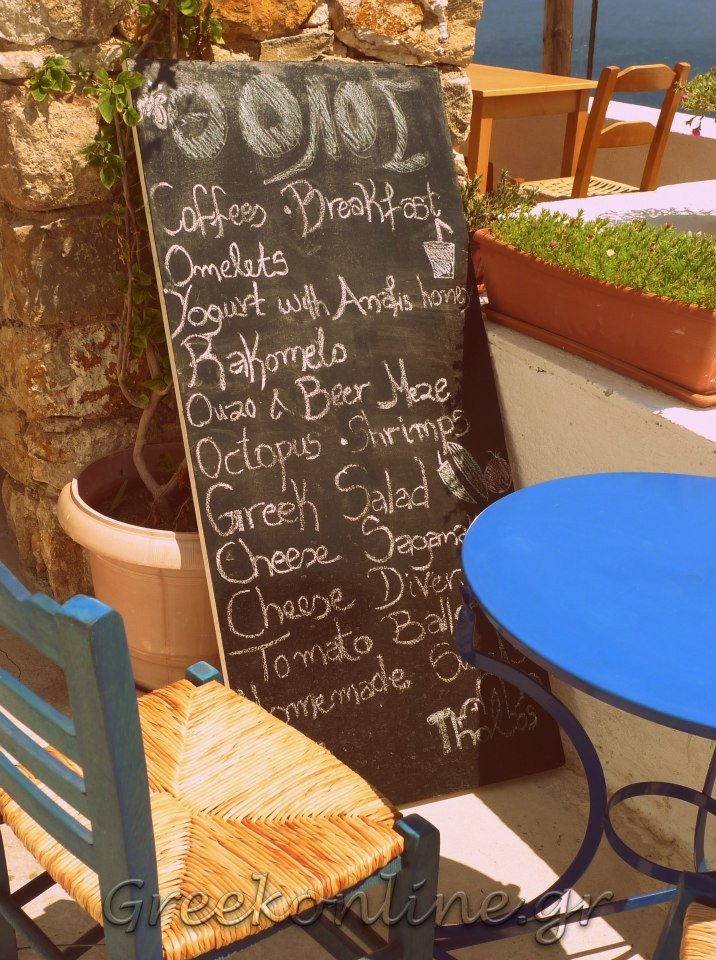 ΘΟΛΟΣ
Coffees · Breakfast
Omelets
Yogurt with Anafis honey
Rakomelo
Ouzo & Beer Meze
Octopus · Shrimps
Greek Salad
Cheese
Cheese
Tomato
Homemade
Tholos
Greekonline.gr